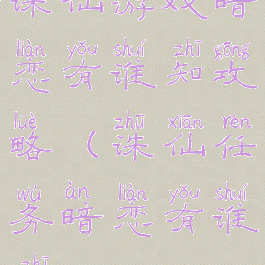 诛仙游戏暗
liàn yǒu shuí zhī gōng
恋有谁知攻
luè zhū xiān rèn
略（诛仙任
wù àn liàn yǒu shuí
务暗恋有谁
zhī